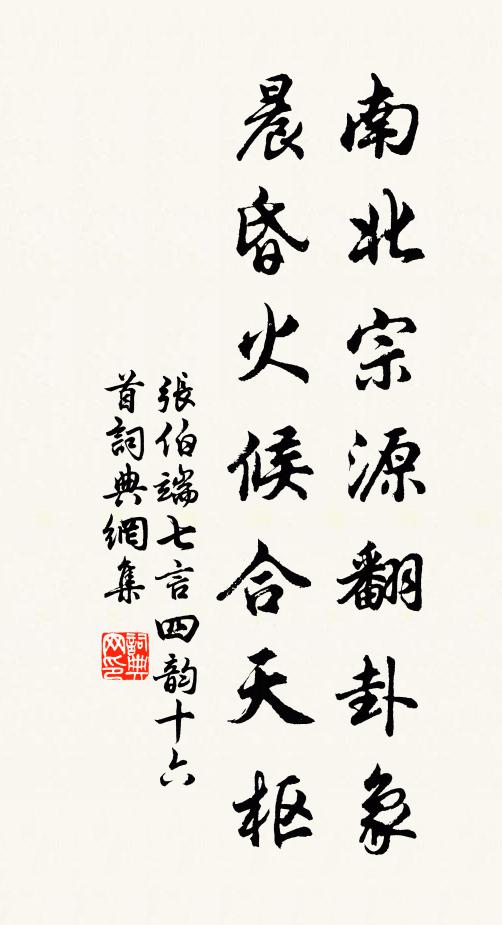 南北宗源翻卦象
晨昏火候合天枢
張伯端七言四韵十六
首詞典網集
詞典网印